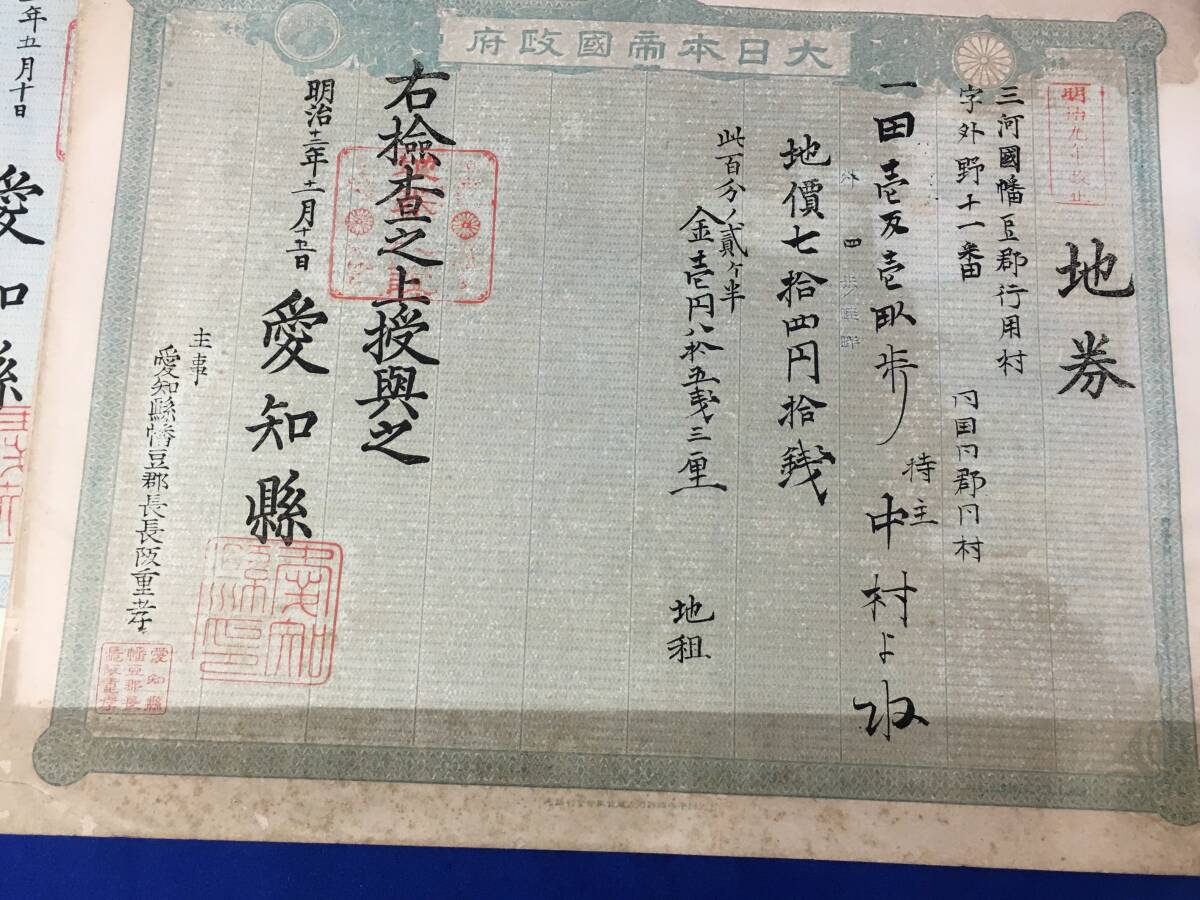 大日本帝國政府
地券
明治九年改正
三河國幡豆郡行用村
字外野十一番
一田壱反壱畝歩
同国同郡同村
持主 中村よ
外
地價七拾四円拾銭
此百分ノ貳ヶ半
金壱円八拾五銭三厘
地租
右檢査之上授與之
明治十二年十一月十五日
愛知縣
主事
愛知縣幡豆郡長長阪重孝
愛知縣印
愛知縣
幡豆郡長
年五月十日
愛知縣